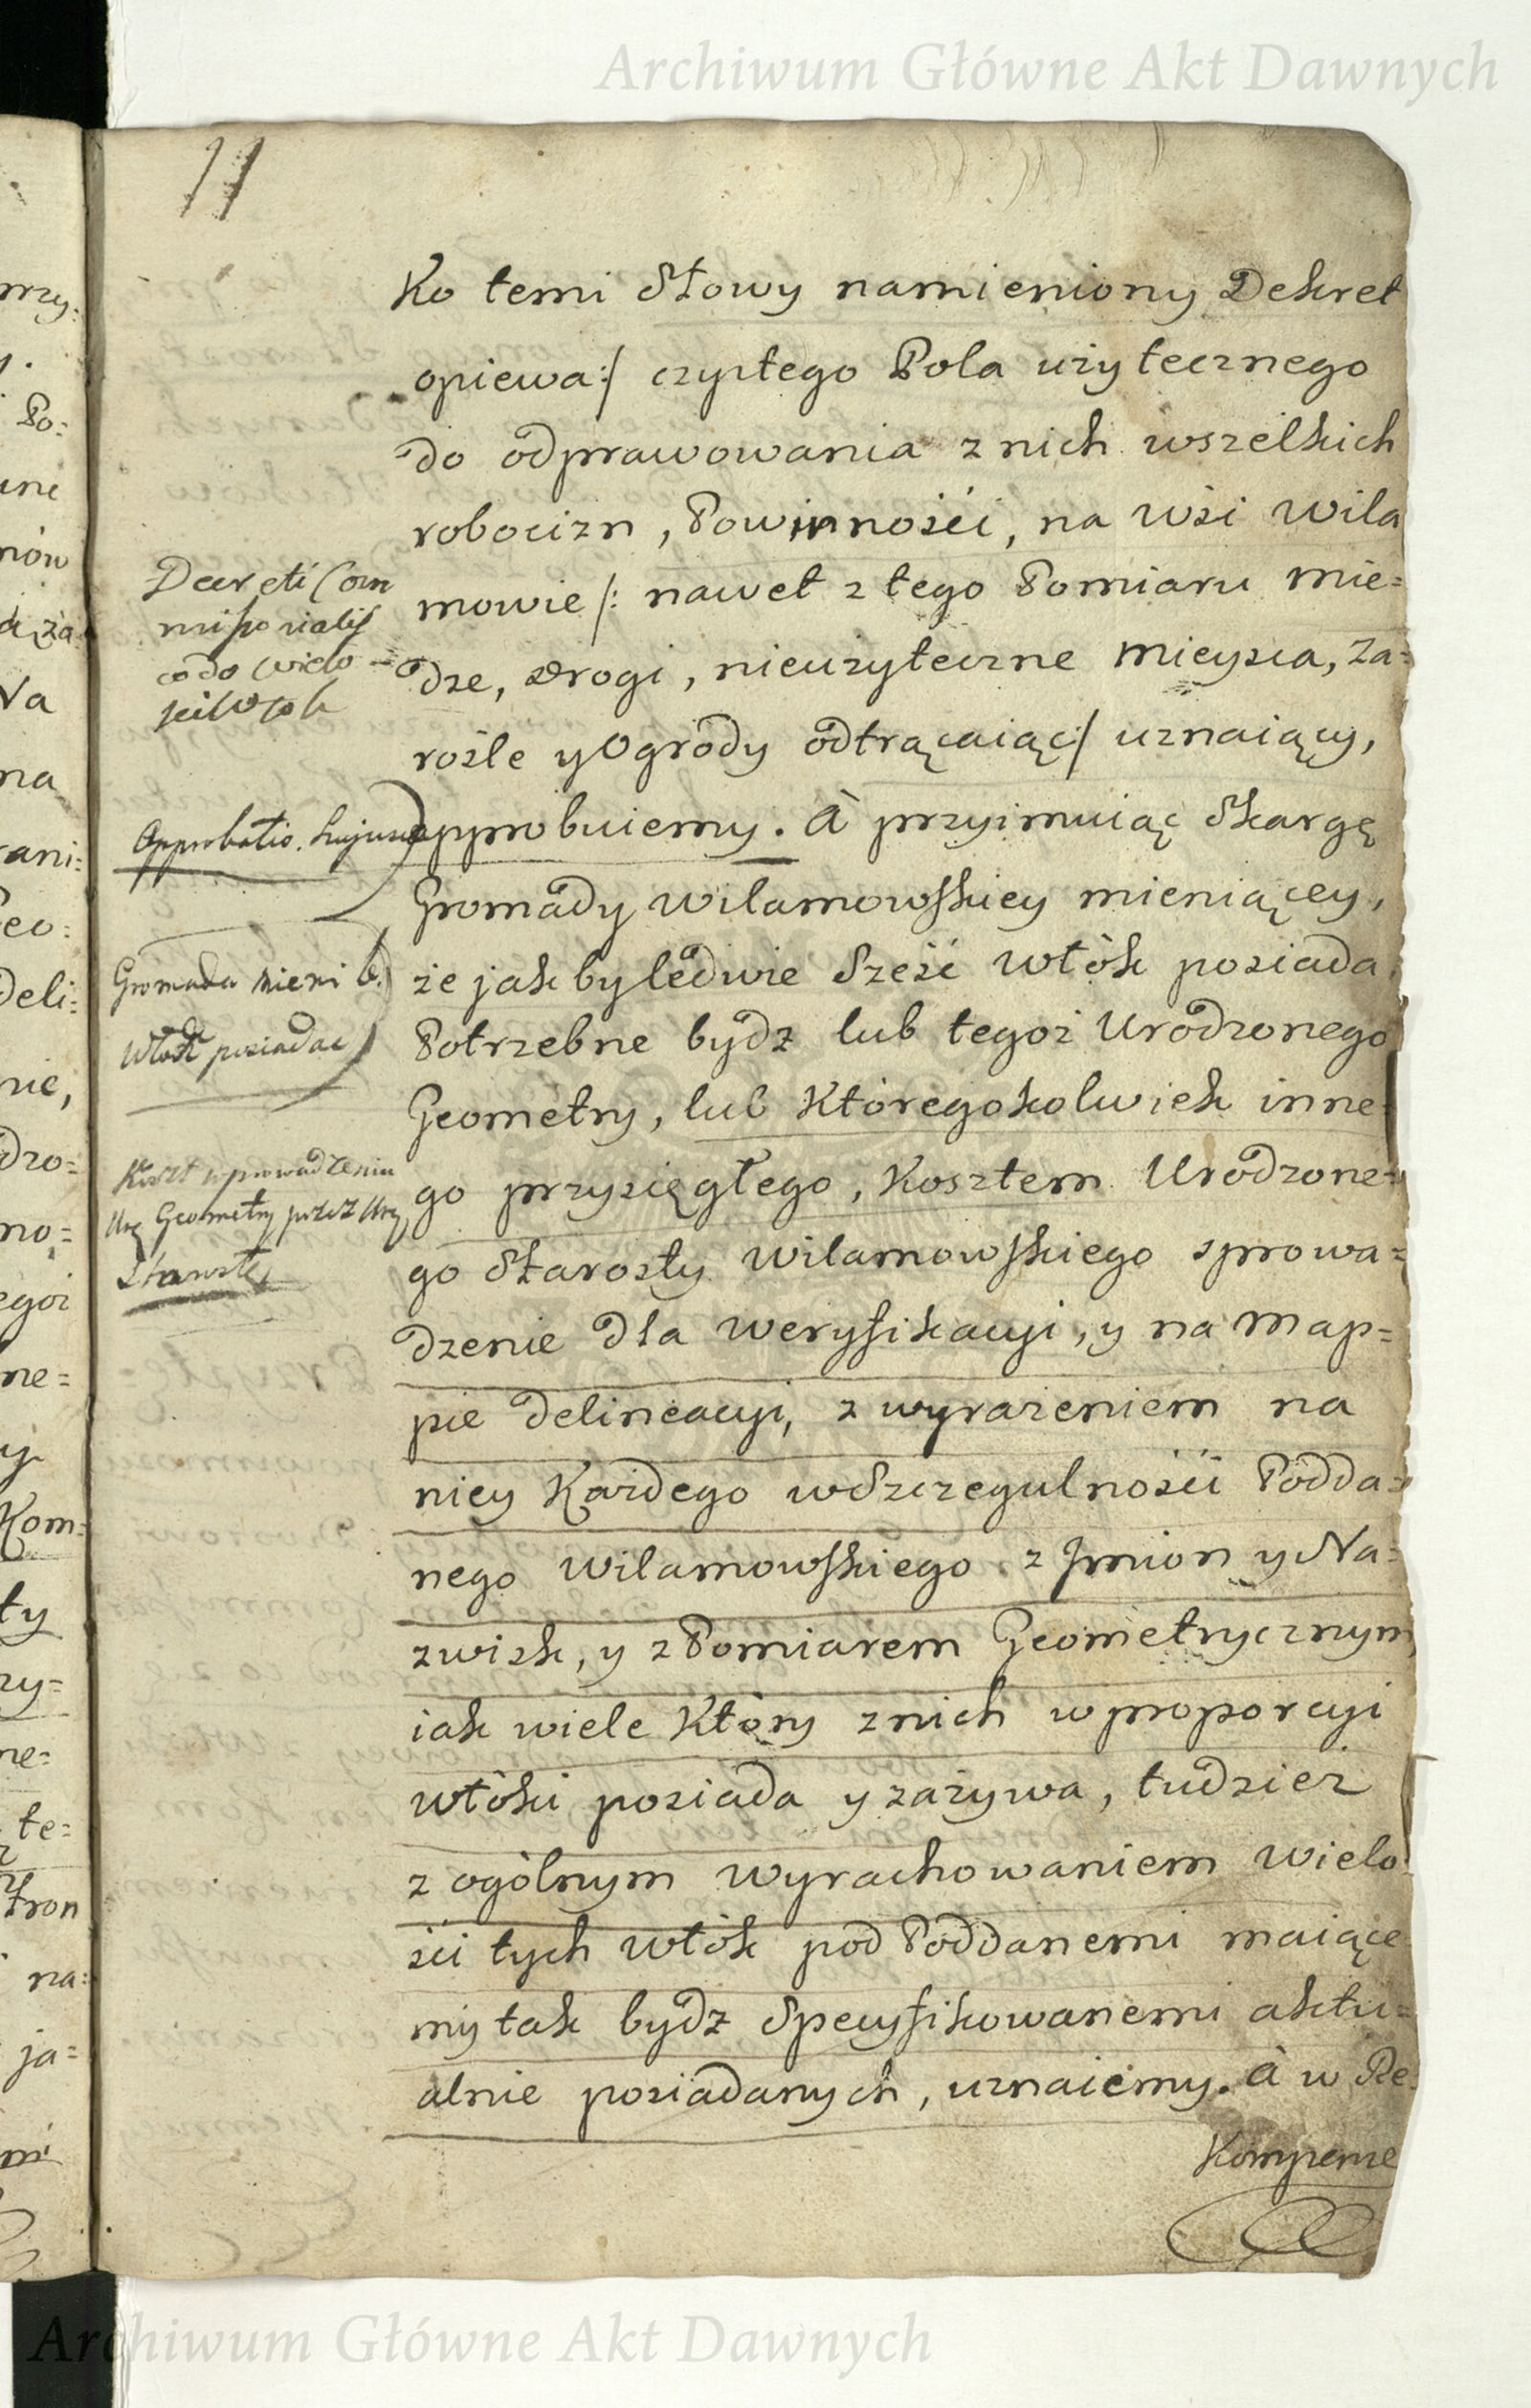 Archiwum Główne Akt Dawnych
11
Ko temi Słowy namieniony Dekret
opiewa:/ czystego Pola użytecznego
do odprawowania z nich wszelkich
robocizn, Powinności, na wsi Wila
mowie /: nawet z tego Pomiaru mie=
dze, drogi, nieużyteczne mieysca, za=
rośle y Ogrody odtrącaiąc:/ uznaiący,
approbuiemy. A przyimuiąc Skargę
Gromady Wilamowskiey mieniącey,
że jak by ledwie Sześć włók posiada.
Potrzebne bydź lub tegoż Urodzonego
Geometry, lub Któregokolwiek inne=
go przysięgłego, Kosztem Urodzone=
go Starosty Wilamowskiego sprowa=
dzenie dla weryfikacyi, y na Map=
pie delineacyi, z wyrażeniem na
niey Każdego w Szczegulności Podda=
nego Wilamowskiego z Jmion y Na=
zwisk, y z Pomiarem Geometrycznym
iak wiele Który z nich w proporcyi
włóki posiada y zażywa, tudzież
z ogólnym wyrachowaniem wielo
ści tych włók pod Poddanemi maiące
my tak bydź Specyfikowanemi aktu=
alnie posiadanych, uznaiemy. A w Re=
Kompense
Decreti Com
missorialis
co do wielo
ści Włók
Approbatio. hujus
Gromada mieni 6.
Włók posiadać
Koszt wprowadzenia
Ur. Geometry przez Ur.
Starostę
Archiwum Główne Akt Dawnych